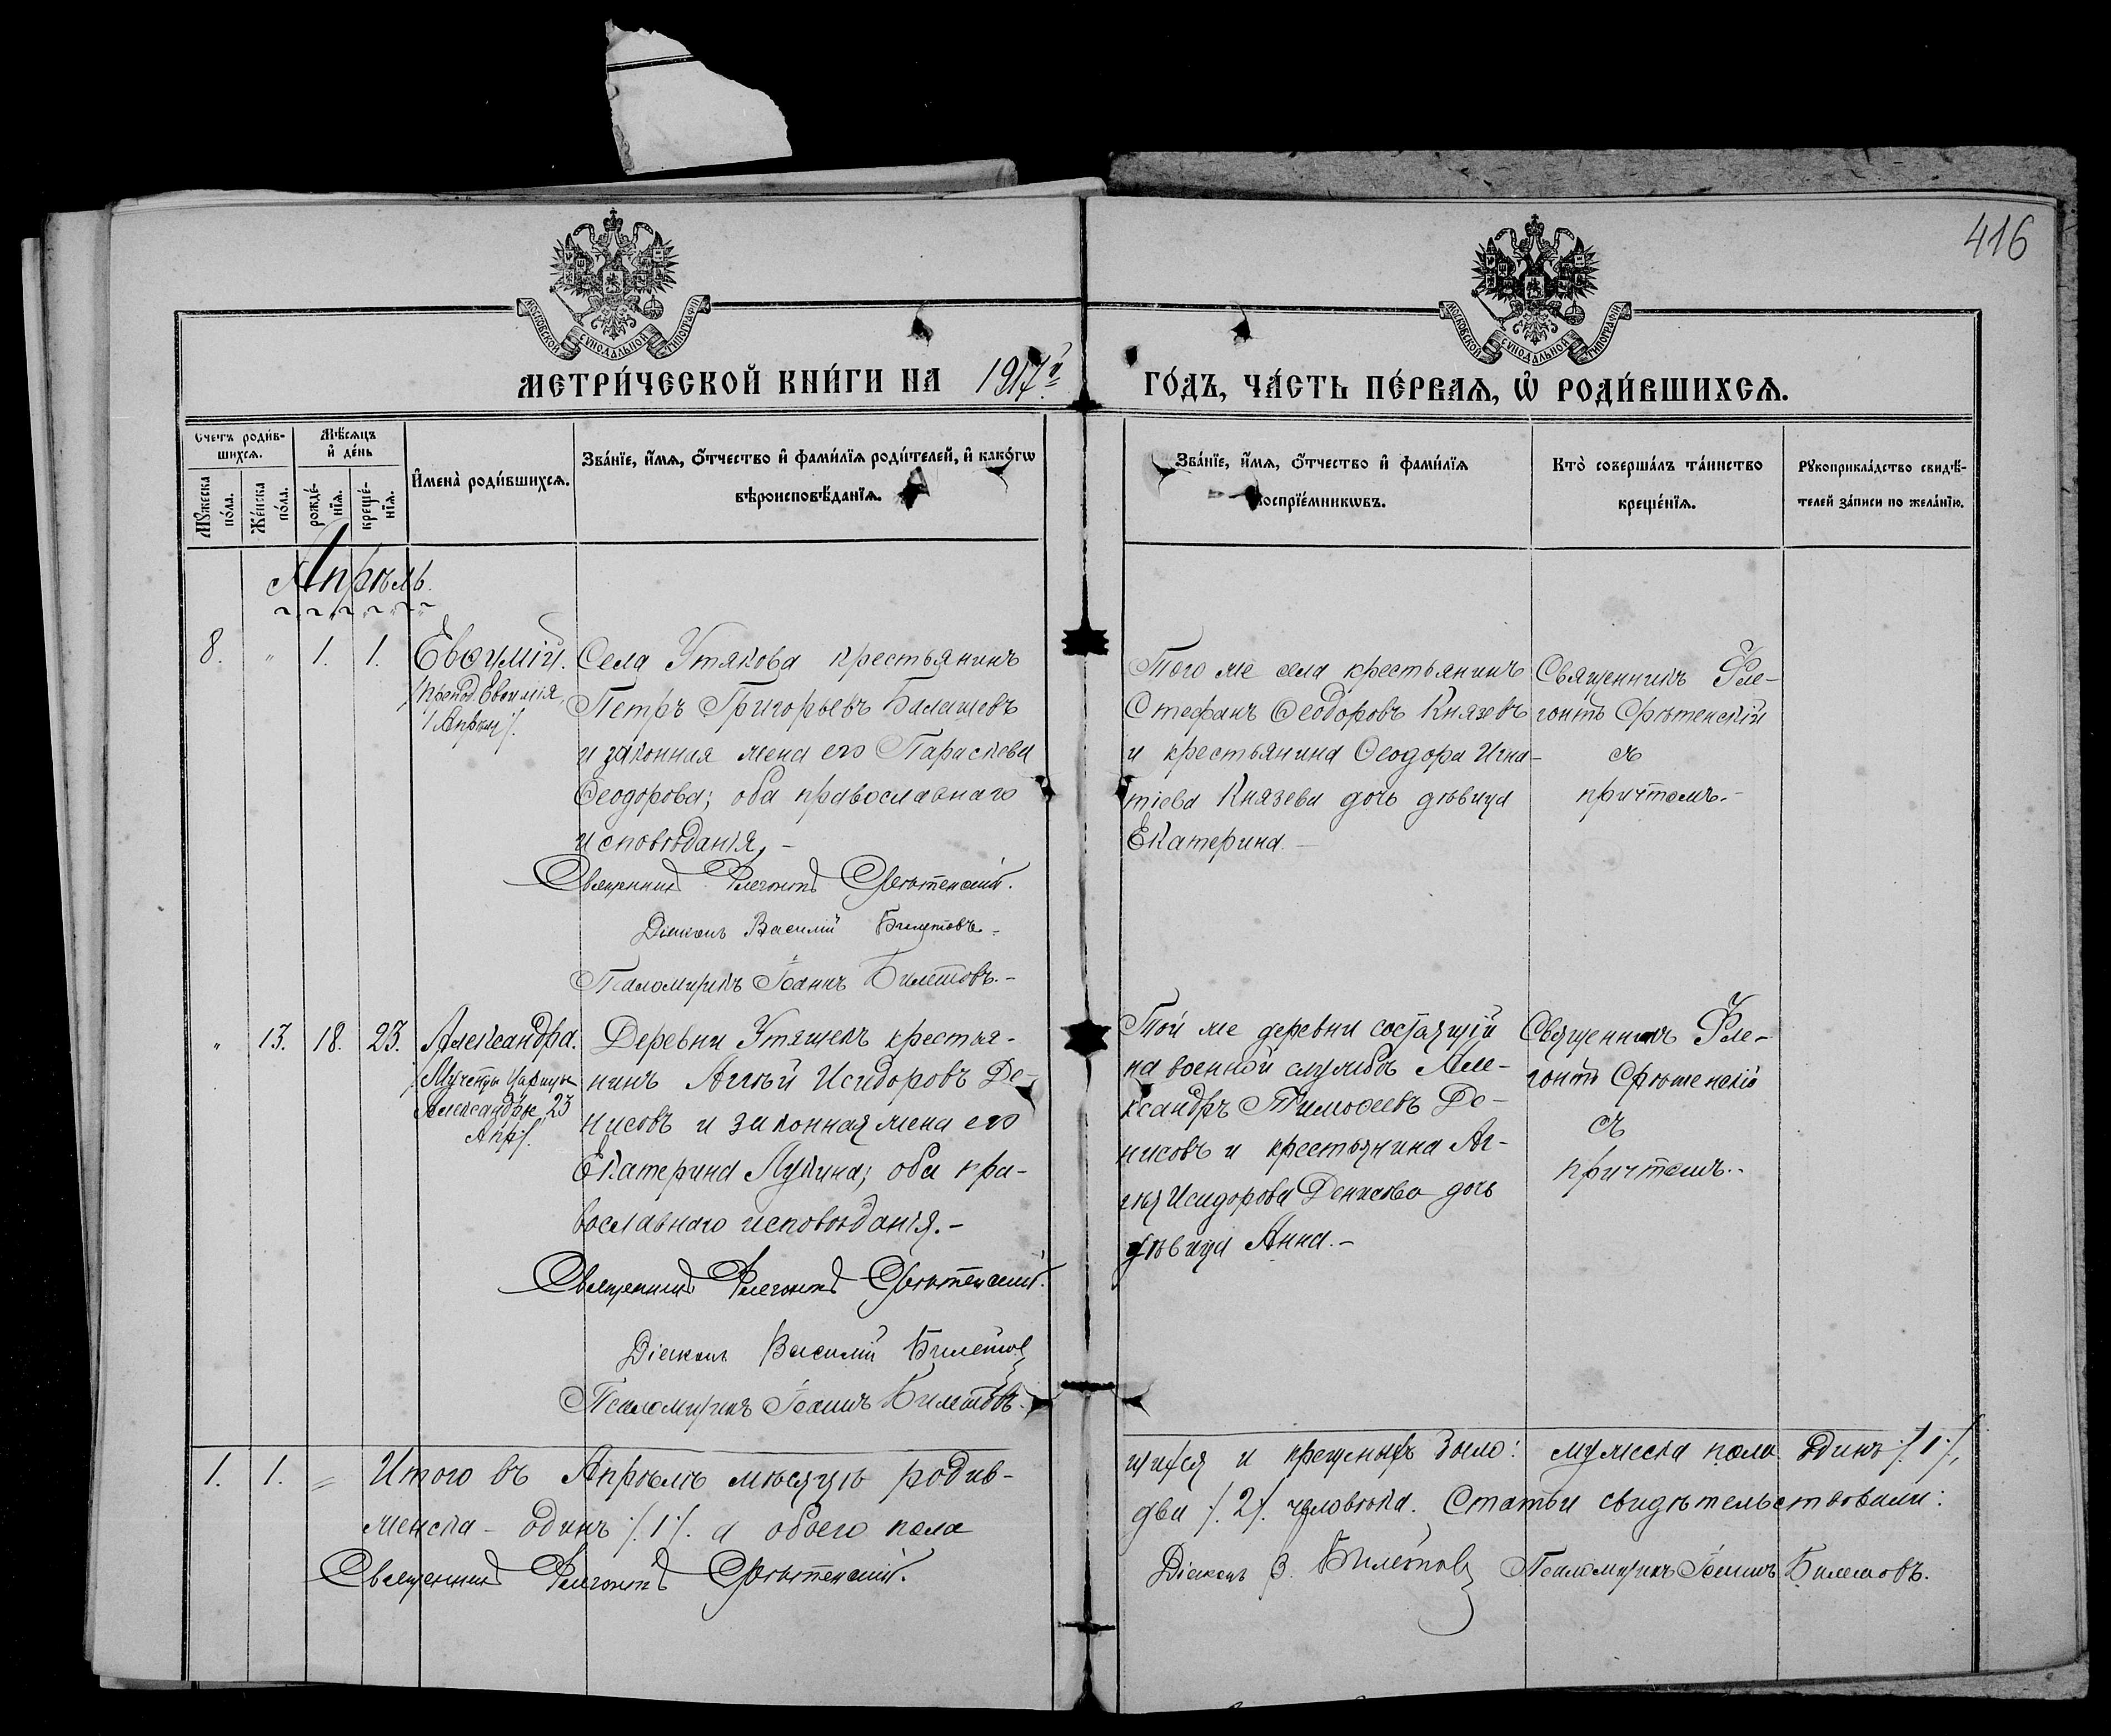 416
МОСКОВСКОЙ СѴНОДАЛЬНОЙ ТИПОГРАФІИ
МОСКОВСКОЙ СѴНОДАЛЬНОЙ ТИПОГРАФІИ
МЕТРИ́ЧЕСКОЙ КНИ́ГИ НА 1917 г. ГО́ДЪ, ЧА́СТЬ ПЕ́РВАѦ, Ѡ҆ РОДИ́ВШИХСѦ.
Счетъ роди́в-
шихсѧ.
Мꙋжеска по́ла.
Же́нска по́ла.
Мѣ́сѧцъ
и҆ де́нь
рожде́-
нїѧ.
креще́-
нїѧ.
И҆мена̀ роди́вшихсѧ.
Зва́нїе, и҆́мѧ, ѻ҆́тчество и҆ фами́лїѧ роди́телей, и҆ како́гѡ
вѣроисповѣ́данїѧ.
Зва́нїе, и҆́мѧ, ѻ҆́тчество и҆ фами́лїѧ
воспрїе́мникѡвъ.
Кто̀ соверша́лъ та́инство
креще́нїѧ.
Рꙋкоприкла́дство свидѣ́-
телей за́писи по жела́нїю.
Апрѣль.
8. " 1. 1. Евѳумій.
/препод. Евѳимія,
1 Апрѣля/.
Села Утякова крестьянинъ
Петръ Григорьевъ Балашевъ
и законная жена его Параскева
Ѳеодорова; оба православнаго
исповѣданія, -
Священникъ Флегонтъ Срѣтенскій.
Діаконъ Василій Билетовъ.
Псаломщикъ Іоаннъ Билетовъ. -
Того же села крестьянинъ
Стефанъ Ѳеодоровъ Князевъ
и крестьянина Ѳеодора Игна-
тіева Князева дочь дѣвица
Екатерина. -
Священникъ Фле-
гонтъ Срѣтенскій
съ
причтомъ. -
" 13. 18. 23. Александра.
/Мученицы Царицы
Александры, 23
Апр/.
Деревни Утяшекъ крестья-
нинъ Аггѣй Исидоровъ Де-
нисовъ и законная жена его
Екатерина Лукина; оба пра-
вославнаго исповѣданія. -
Священникъ Флегонтъ Срѣтенскій.
Діаконъ Василій Билетовъ
Псаломщикъ Іоаннъ Билетовъ.
Той же деревни состоящій
на военной службѣ Але-
ксандръ Тимоѳеевъ Де-
нисовъ и крестьянина Аг-
гѣя Исидорова Денисова дочь
дѣвица Анна. -
Священникъ Фле-
гонтъ Срѣтенскій
съ
причтомъ. -
1. 1. = Итого въ Апрѣлѣ мѣсяцѣ родив-
шихся и крещеныхъ было: мужеска пола одинъ /1/,
женска - одинъ /1/. а обоего пола
два /2/. человѣка. Статьи свидѣтельствовали:
Священникъ Флегонтъ Срѣтенскій.
Діаконъ В. Билетовъ Псаломщикъ Іоаннъ Билетовъ.